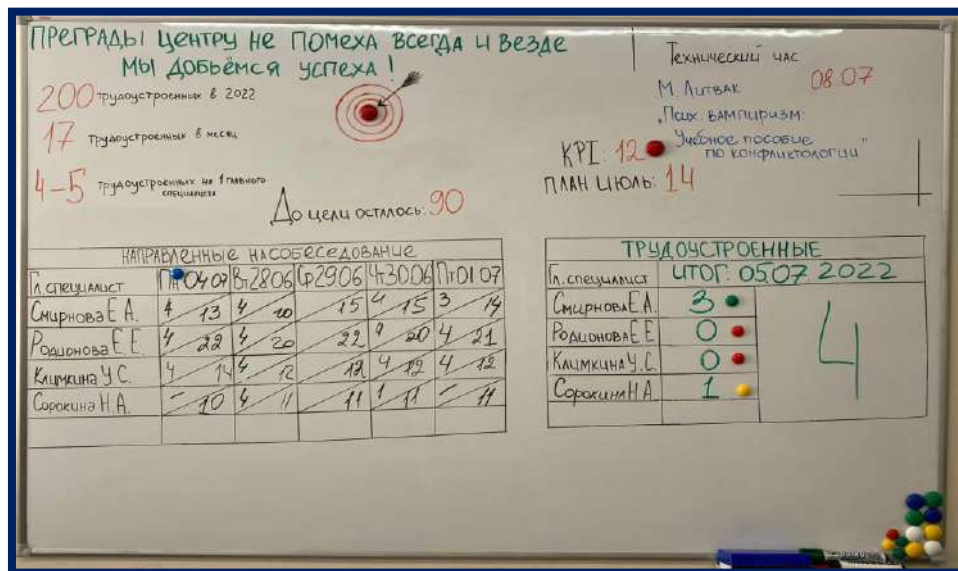 ПРЕГРАДЫ ЦЕНТРУ НЕ ПОМЕХА ВСЕГДА И ВЕЗДЕ
МЫ ДОБЬЁМСЯ УСПЕХА!
200 трудоустроенных в 2022
17 трудоустроенных в месяц
4-5 трудоустроенных на 1 главного
специалиста
До цели осталось: 90
Технический час
08.07
М. Литвак
"Псих. вампиризм:
Учебное пособие
по конфликтологии"
KPI: 12
ПЛАН ИЮЛЬ: 14
НАПРАВЛЕННЫЕ НА СОБЕСЕДОВАНИЕ
Гл. специалист Пн 04 07 Вт 28 06 Ср 29 06 Чт 30 06 Пт 01 07
Смирнова Е А. 4/13 4/20 /15 4/15 3/14
Родионова Е Е. 4/22 4/20 /22 9/20 4/21
Климкина У С. 4/14 4/12 /12 4/12 4/12
Сорокина Н.А. -/10 4/11 /11 1/11 -/11
ТРУДОУСТРОЕННЫЕ
Гл. специалист ИТОГ: 05.07 2022
Смирнова Е.А. 3
Родионова Е.Е 0
Климкина У.С. 0
Сорокина Н.А. 1
4